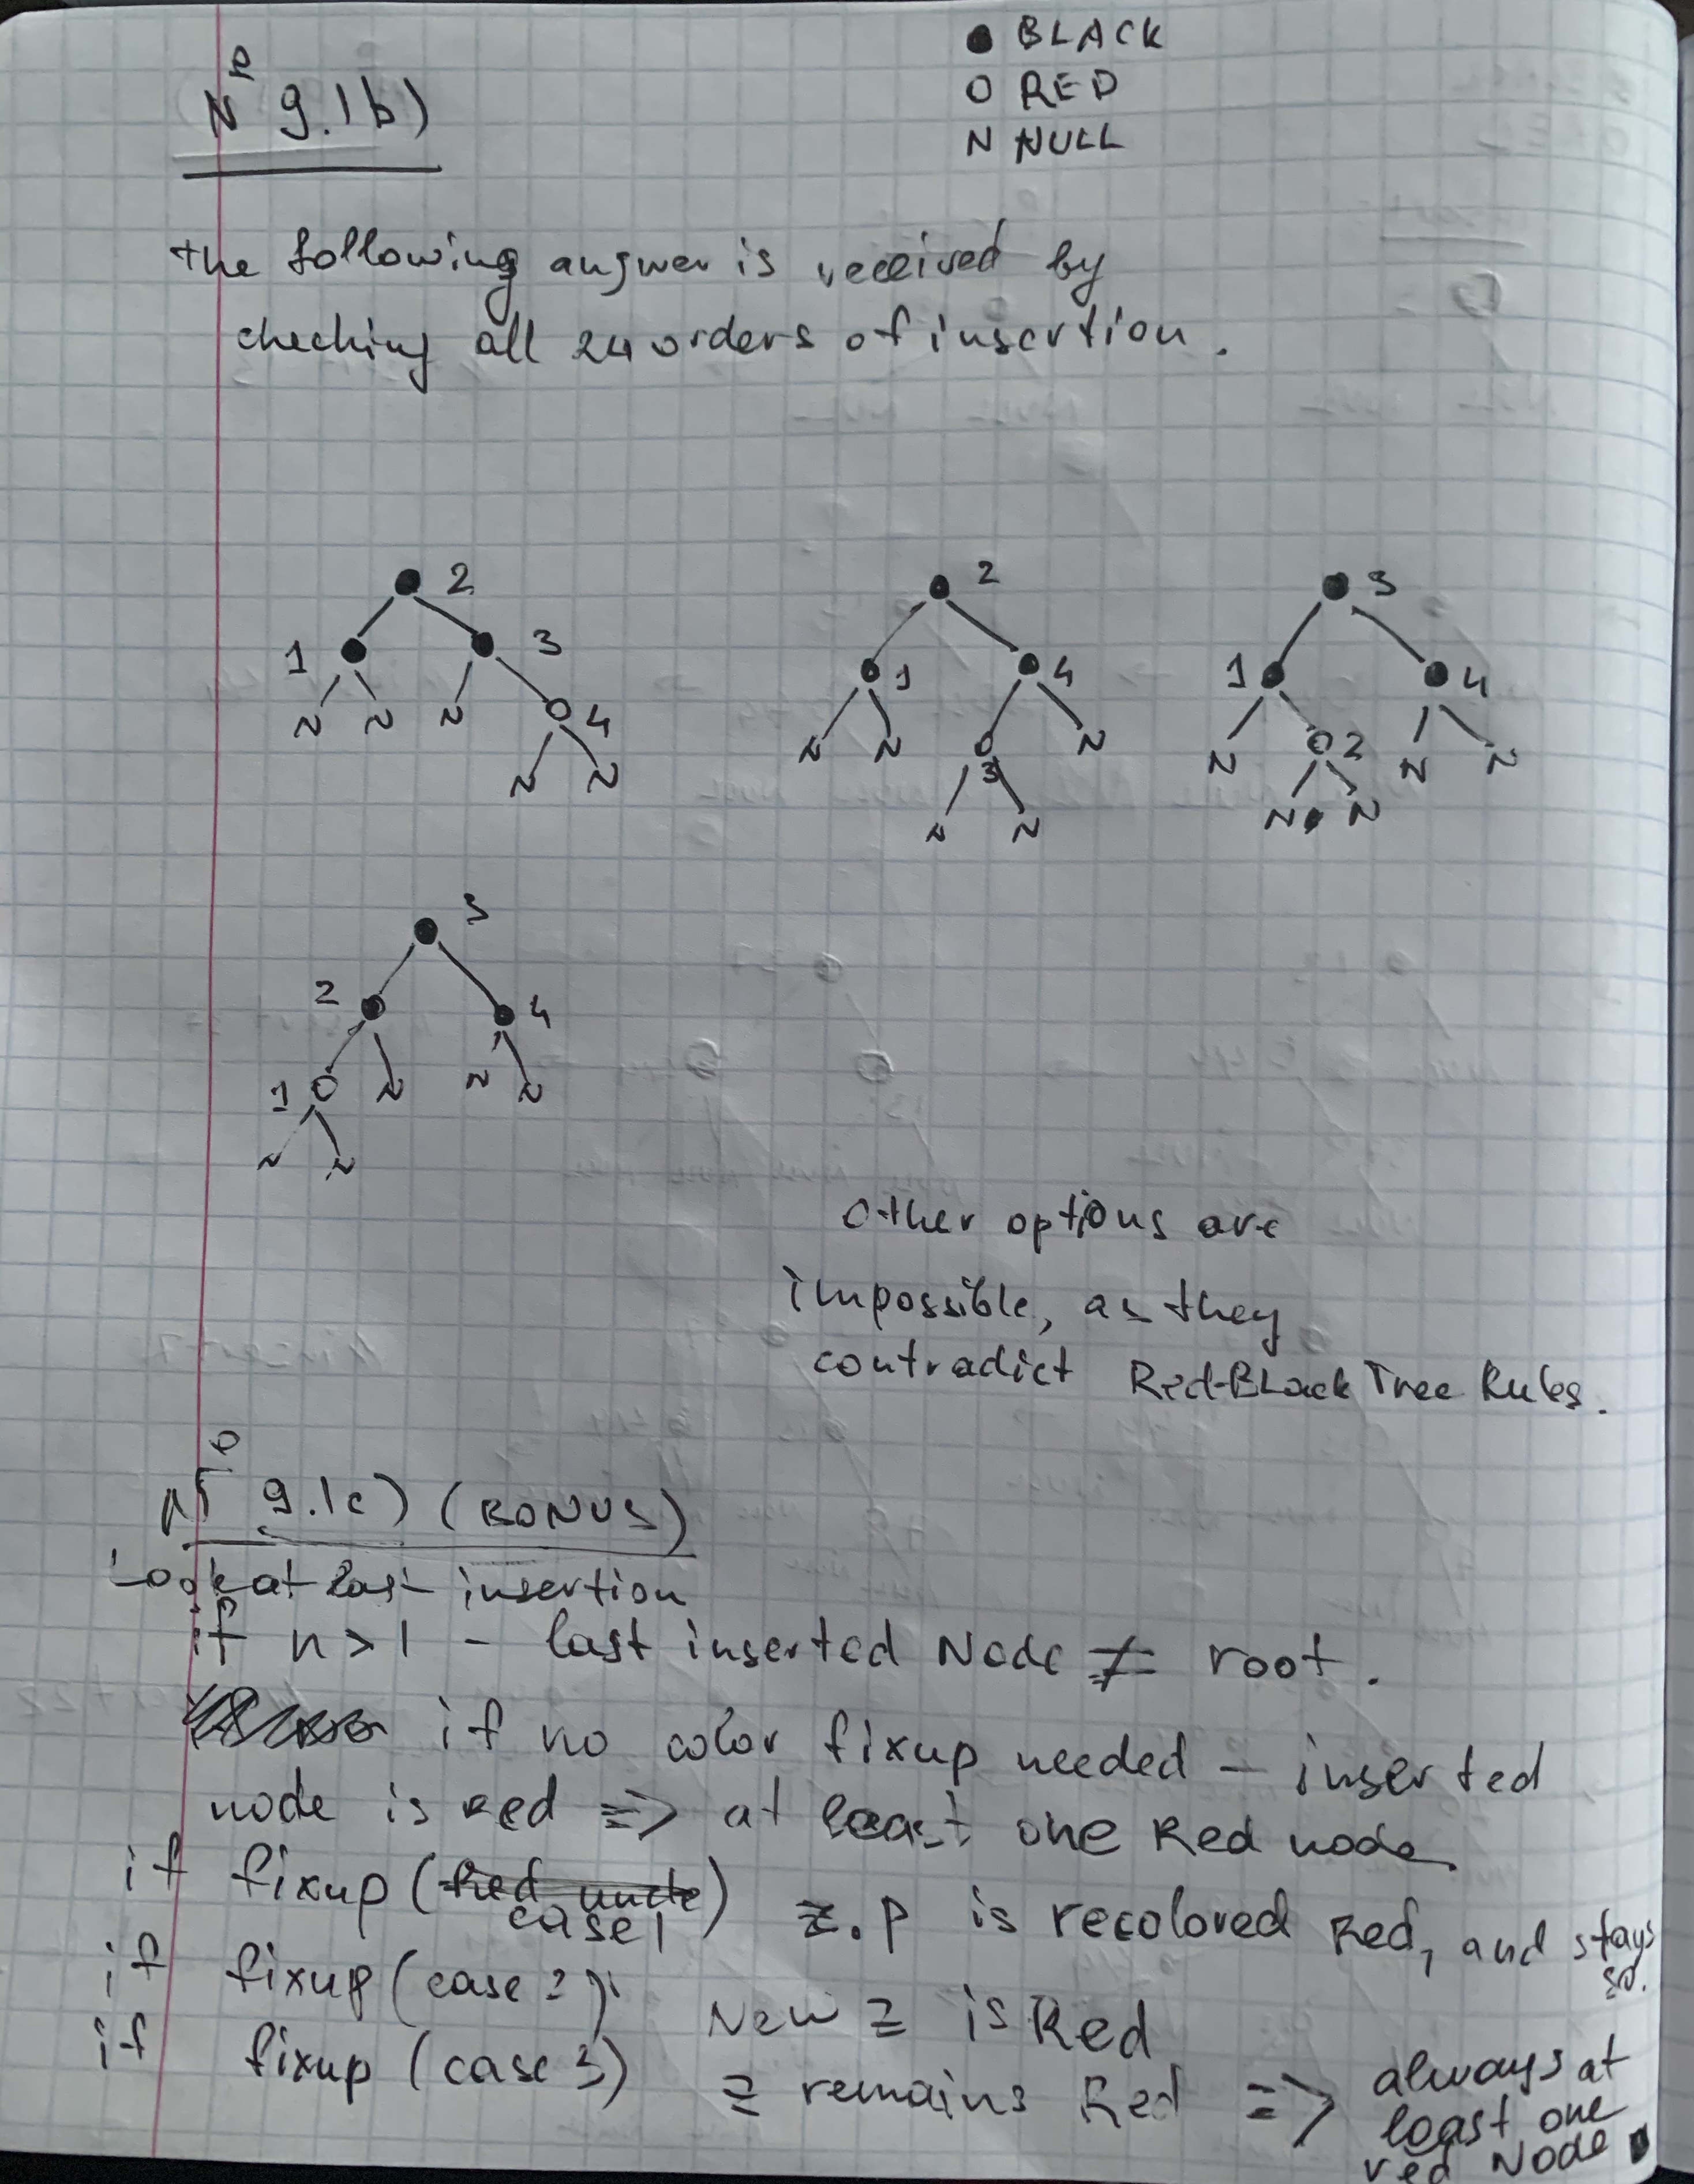 ● BLACK
O RED
N NULL
№ 9.1b)
the following answer is received by
checking all 24 orders of insertion.
2
1 3
N N N 4
N N
2
1 4
N N 3 N
N N
3
1 4
N 2 N N
N N
3
2 4
1 N N N
N N
Other options are
impossible, as they
contradict Red-Black Tree Rules.
№ 9.1c) (BONUS)
Look at last insertion
if n > 1 - last inserted Node ≠ root.
if no color fixup needed - inserted
node is Red => at least one Red node.
if fixup (Red uncle) z.p is recolored Red, and stays
case 1
so.
if fixup (case 2) New z is Red
if fixup (case 3) z remains Red => always at
least one
red Node